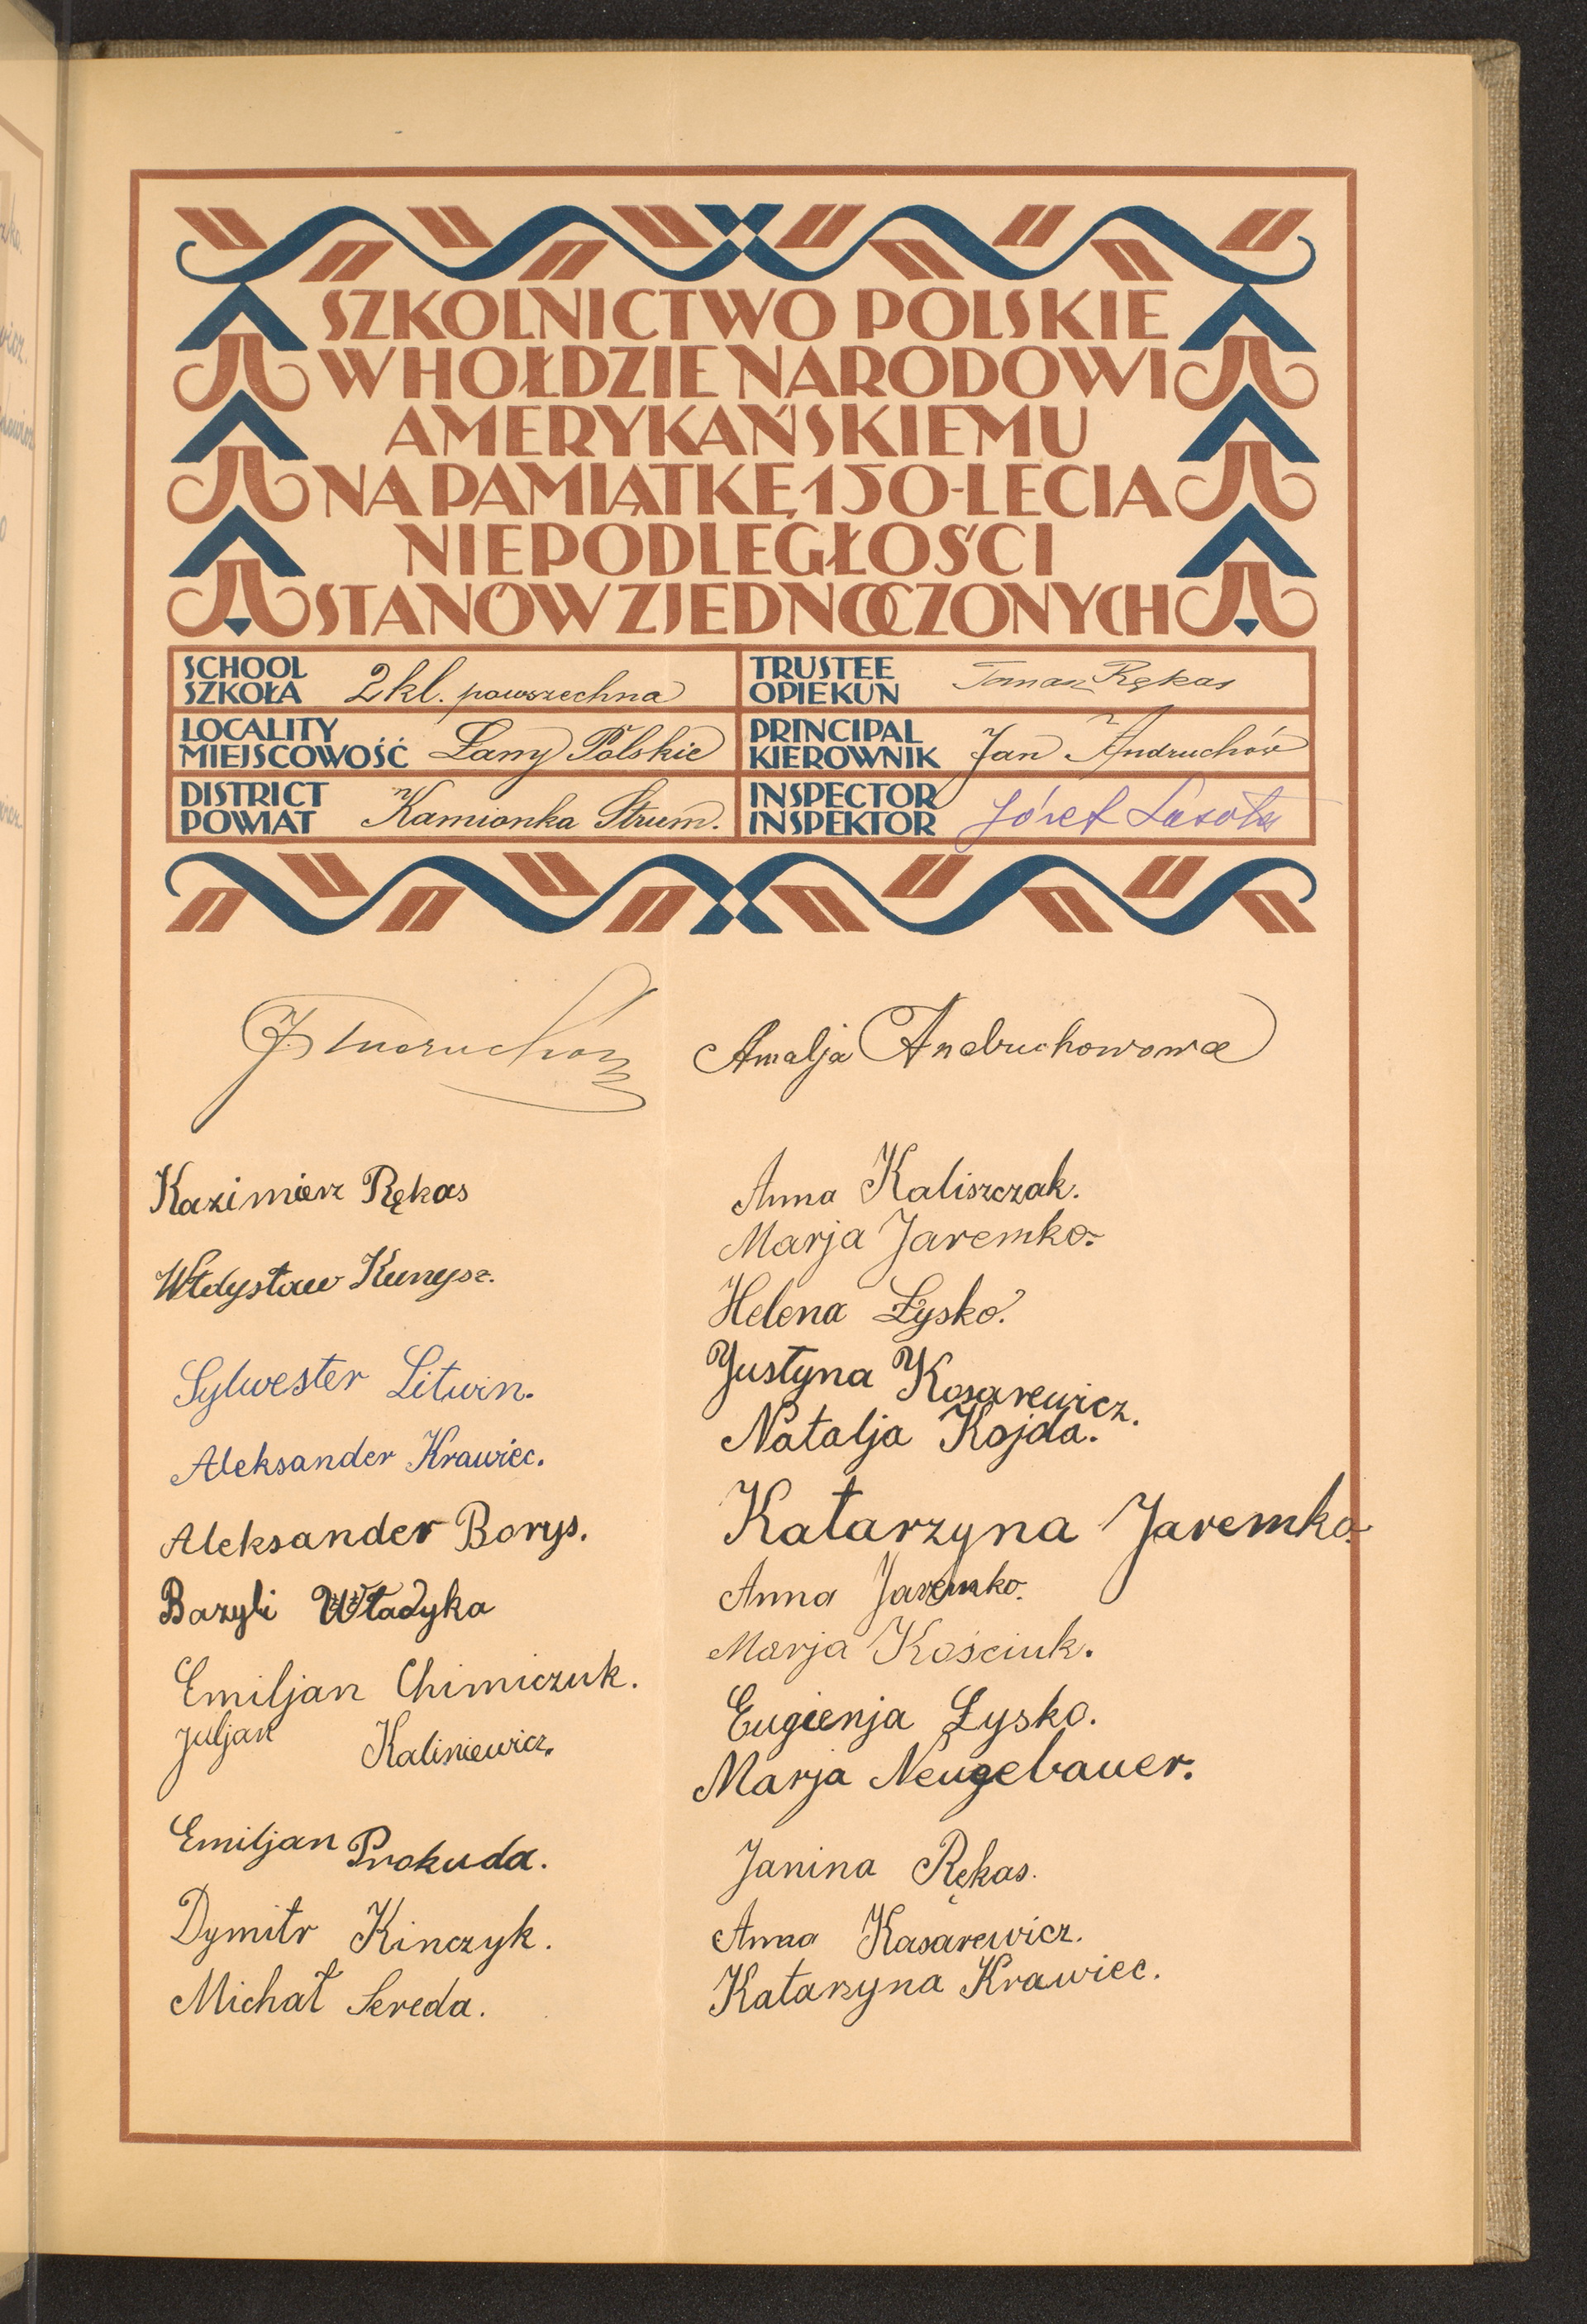 SZKOLNICTWO POLSKIE
W HOŁDZIE NARODOWI
AMERYKAŃSKIEMU
NA PAMIĄTKĘ 150-LECIA
NIEPODLEGŁOŚCI
STANÓW ZJEDNOCZONYCH
SCHOOL
SZKOŁA
2 kl. powszechna
TRUSTEE
OPIEKUN
Tomasz Rękas
LOCALITY
MIEJSCOWOŚĆ
Łany Polskie
PRINCIPAL
KIEROWNIK
Jan Andruchów
DISTRICT
POWIAT
Kamionka Strum.
INSPECTOR
INSPEKTOR
Józef Lasota
J. Andruchów
Amalja Andruchowowa
Kazimierz Rękas
Włdysław Kunysz.
Sylwester Litwin.
Aleksander Krawiec.
Aleksander Borys.
Bazyli Władyka
Emiljan Chimiczuk.
Juljan Kaliniewicz.
Emiljan Prokuda.
Dymitr Kinczyk.
Michał Sereda.
Anna Kaliszczak.
Marja Jaremko.
Helena Łysko.
Justyna Kosarewicz.
Natalja Kojda.
Katarzyna Jaremko.
Anna Jaremko.
Marja Kościuk.
Eugienja Łysko.
Marja Neugebauer.
Janina Rękas.
Anna Kasarewicz.
Katarzyna Krawiec.